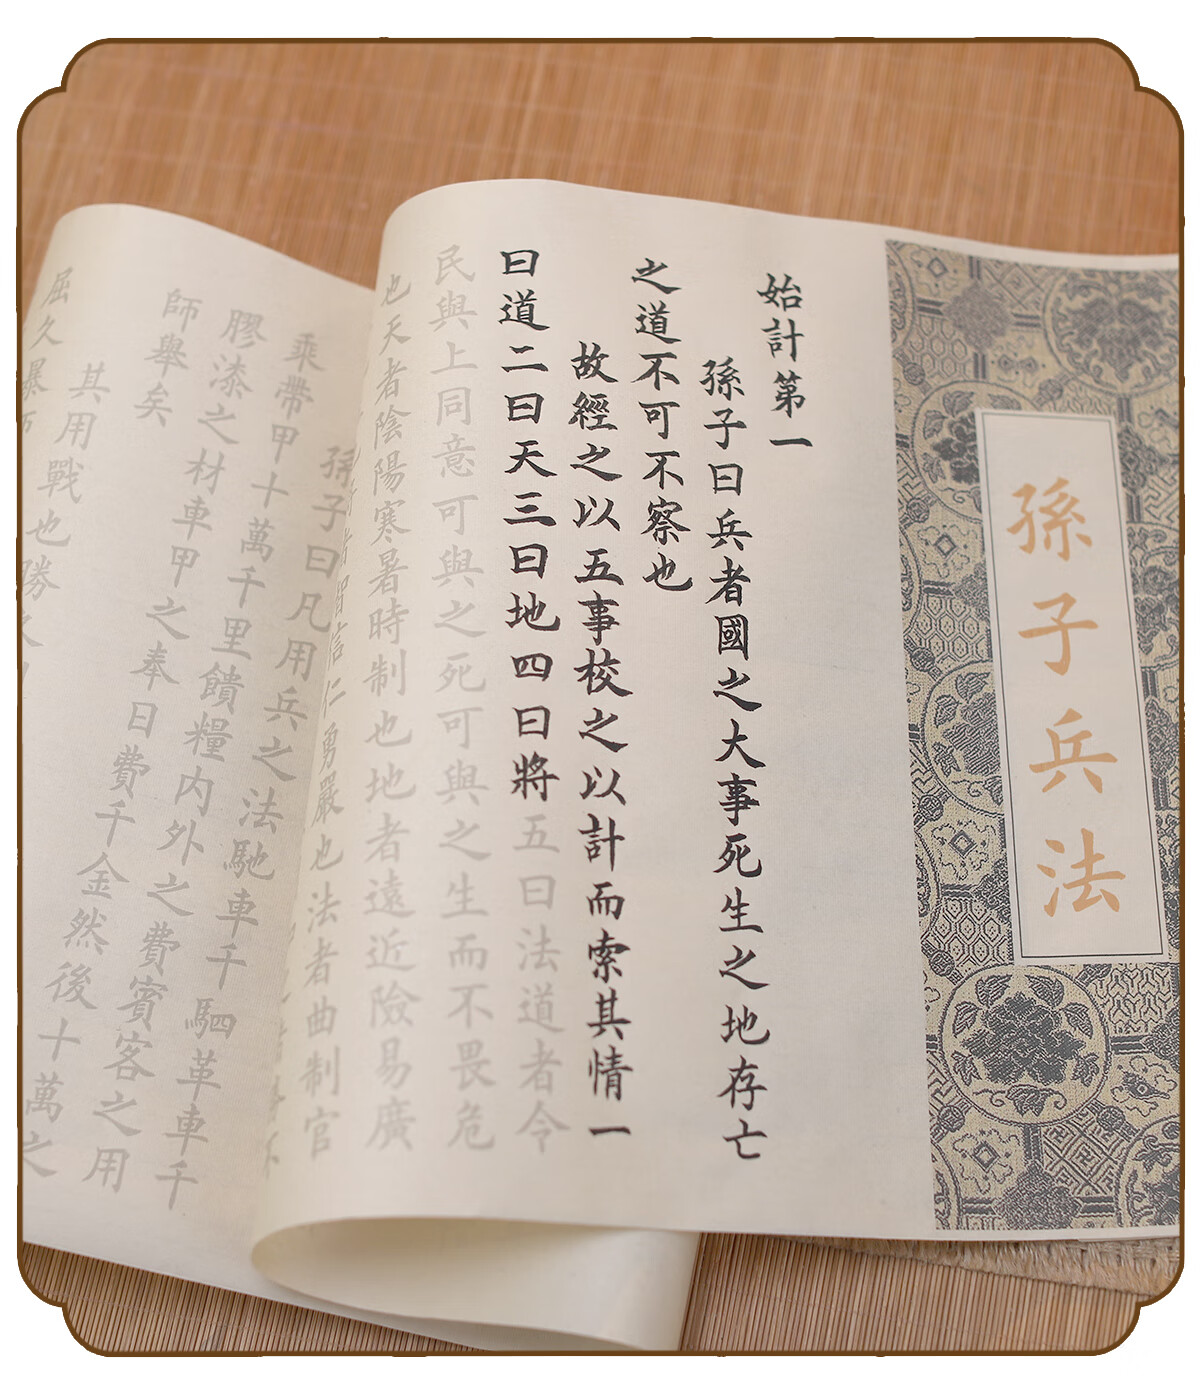 孫子兵法
始計第一
孫子曰兵者國之大事死生之地存亡
之道不可不察也
故經之以五事校之以計而索其情一
曰道二曰天三曰地四曰將五曰法道者今
民與上同意可與之死可與之生而不畏危
也天者陰陽寒暑時制也地者遠近險易廣
信仁勇嚴也法者曲制官
孫子曰凡用兵之法馳車千駟革車千
乘帶甲十萬千里饋糧内外之費賓客之用
膠漆之材車甲之奉日費千金然後十萬之
師舉矣
其用戰也勝
屈久暴